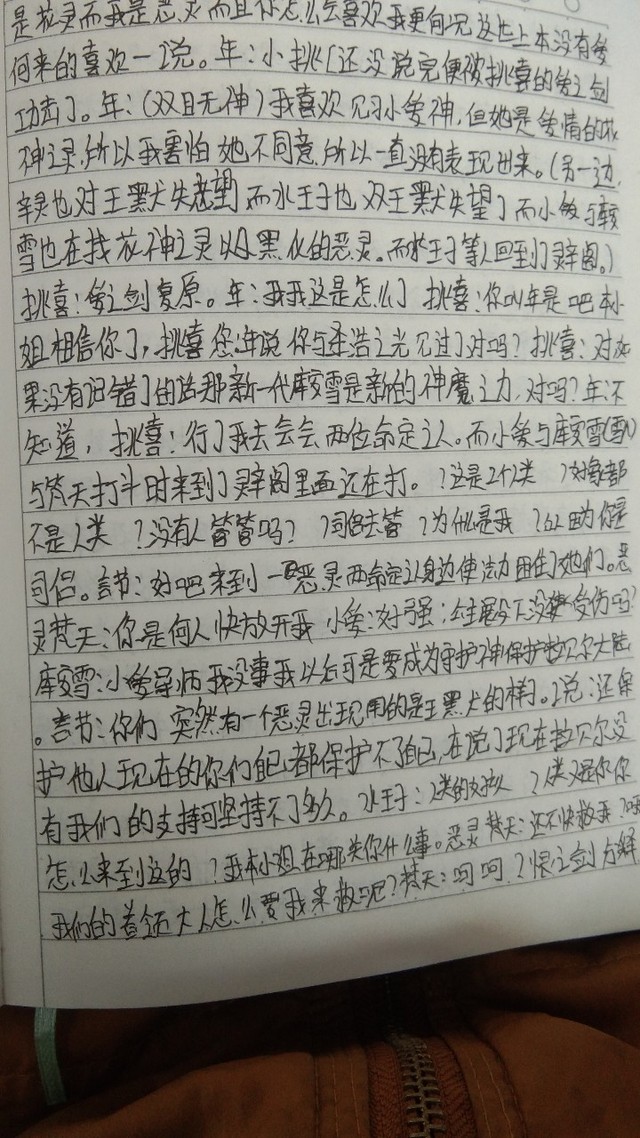 是花灵而我是恶灵而且你怎么会喜欢我更何况这世上本没有爱
何来的喜欢一说。年：小挑[还没说完便被挑喜的爱之剑
功击了。年：（双目无神）我喜欢见习小爱神，但她是爱情的花
神之灵，所以我害怕她不同意，所以一直没有表现出来。（另一边，
辛灵也对王默失望 而水王子也 对王默失望了而小爱与
雪也在找花神之灵以及黑化的恶灵。而水王子等人回到了辟阁。）
挑喜：爱之剑复原。年：我我这是怎么了 挑喜：你叫年是吧本小
姐相信你了，挑喜 您：年说你与圣浩之光见过了对吗？挑喜：对如
果没有记错了的话那新一代库雪是新的神魔之力，对吗？年：不
知道，挑喜：行了我去会会两位命定之人。而小爱与库雪
与梵天打斗时来到了辟阁里面还在打。？这是2个人类 ？好像都
不是人类 ？没有人管管吗？ ？司仪去管 ？为什么是我 ？以因为你是
司侣。言节：好吧来到一恶灵两命定之人身边使法力困住了她们。恶
灵梵天：你是何人快放开我 小爱：好强；公主殿下没受伤吗？
库雪：小爱导师我没事我以后可是要成为守护神保护拉贝尔大陆
。言节：你们 突然有一个恶灵出现用的是王默的样子。说：还保
护他人现在的你们自己都保护不了自己，在说了现在拉贝尔没
有我们的支持可坚持不了多久。水王子：人类的女孩 ？人类又是你你
怎么来到这的 ？我本小姐在哪关你什么事。恶灵梵天：还不快救我？呵
我们的首领大人怎么要我来救呢？梵天：呵呵？恨之剑 分解